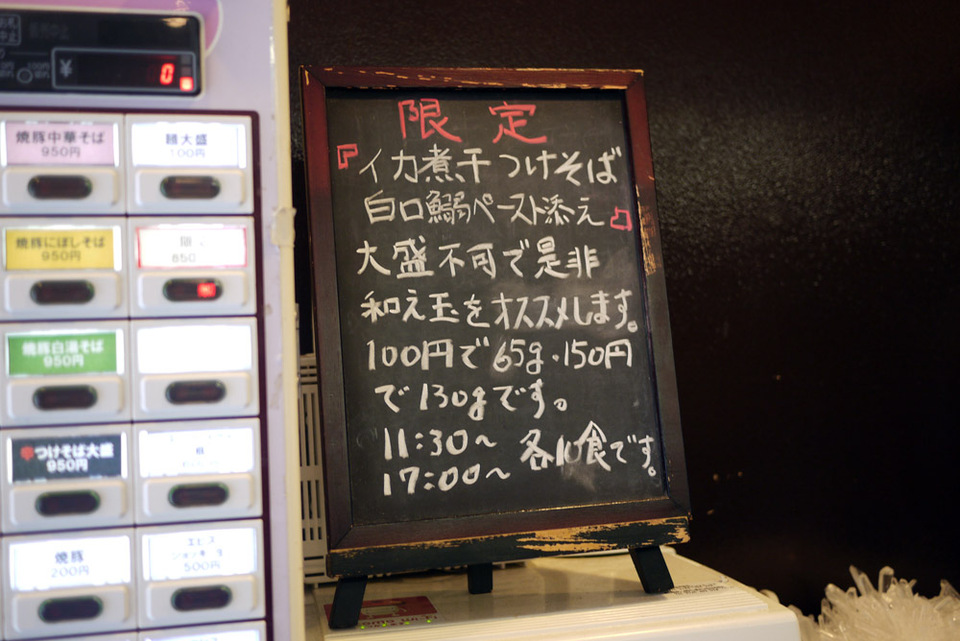 ¥ 0
焼豚中華そば
950円
麺大盛
100円
焼豚にぼしそば
950円
限
850
焼豚白湯そば
950円
辛つけそば大盛
950円
焼豚
200円
エビス
500円
限定
『イカ煮干つけそば
白口鰯ペースト添え』
大盛不可で是非
和え玉をオススメします。
100円で65g・150円
で130gです。
11:30～
17:00～ 各10食です。